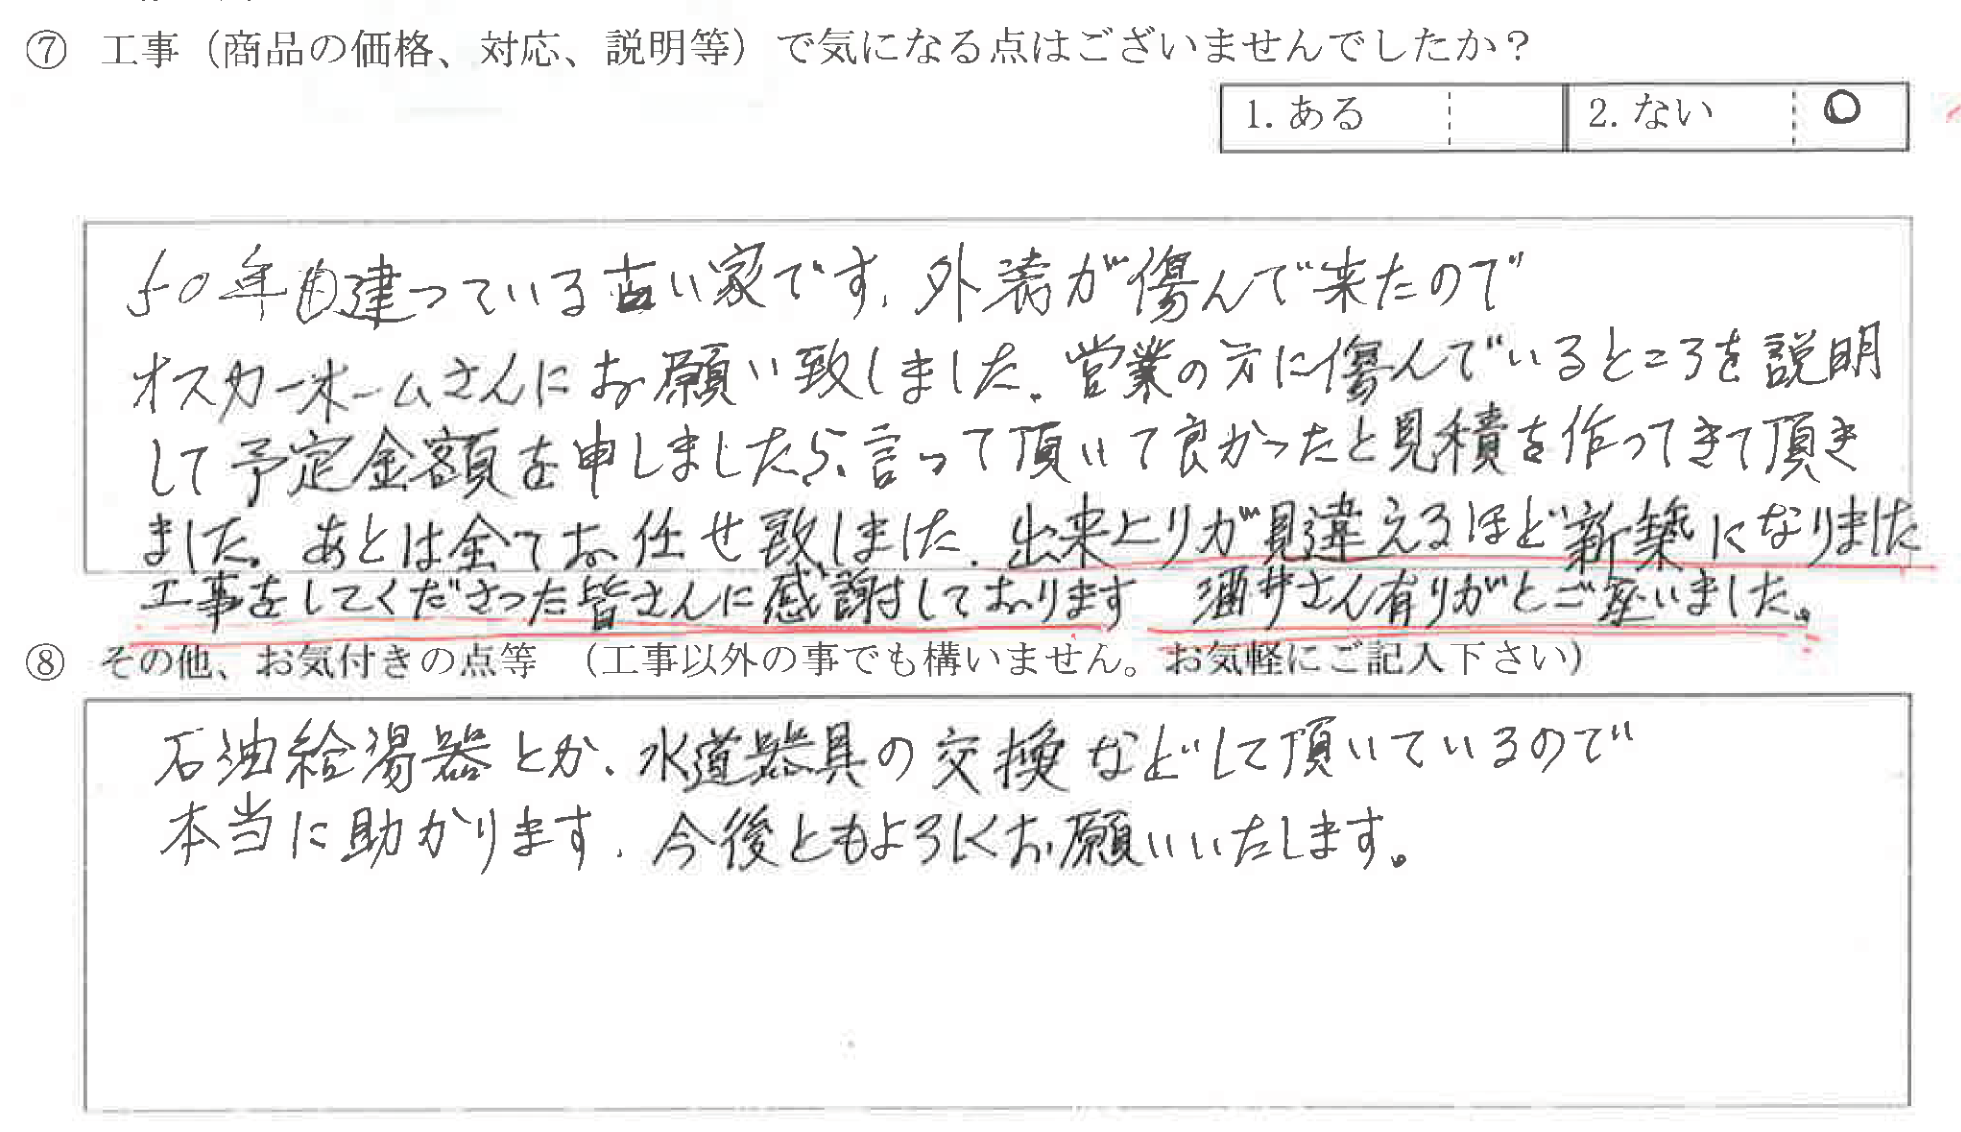 ⑦ 工事（商品の価格、対応、説明等）で気になる点はございませんでしたか？
1. ある 2. ない ○
50年自建っている古い家です、外装が傷んで来たので
オスカーホームさんにお願い致しました。営業の方に傷んでいるところを説明
して予定金額を申しましたら、言って頂いて良かったと見積を作ってきて頂き
ました。あとは全てお任せ致しました。出来上りが見違えるほど新築になりました
工事をしてくださった皆さんに感謝しております 酒井さん有りがとご座いました。
⑧ その他、お気付きの点等 （工事以外の事でも構いません。お気軽にご記入下さい）
石油給湯器とか、水道器具の交換などして頂いているので
本当に助かります、今後ともよろしくお願いいたします。